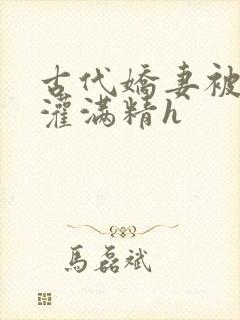 古代嬌妻被
灌滿精h
馬磊斌